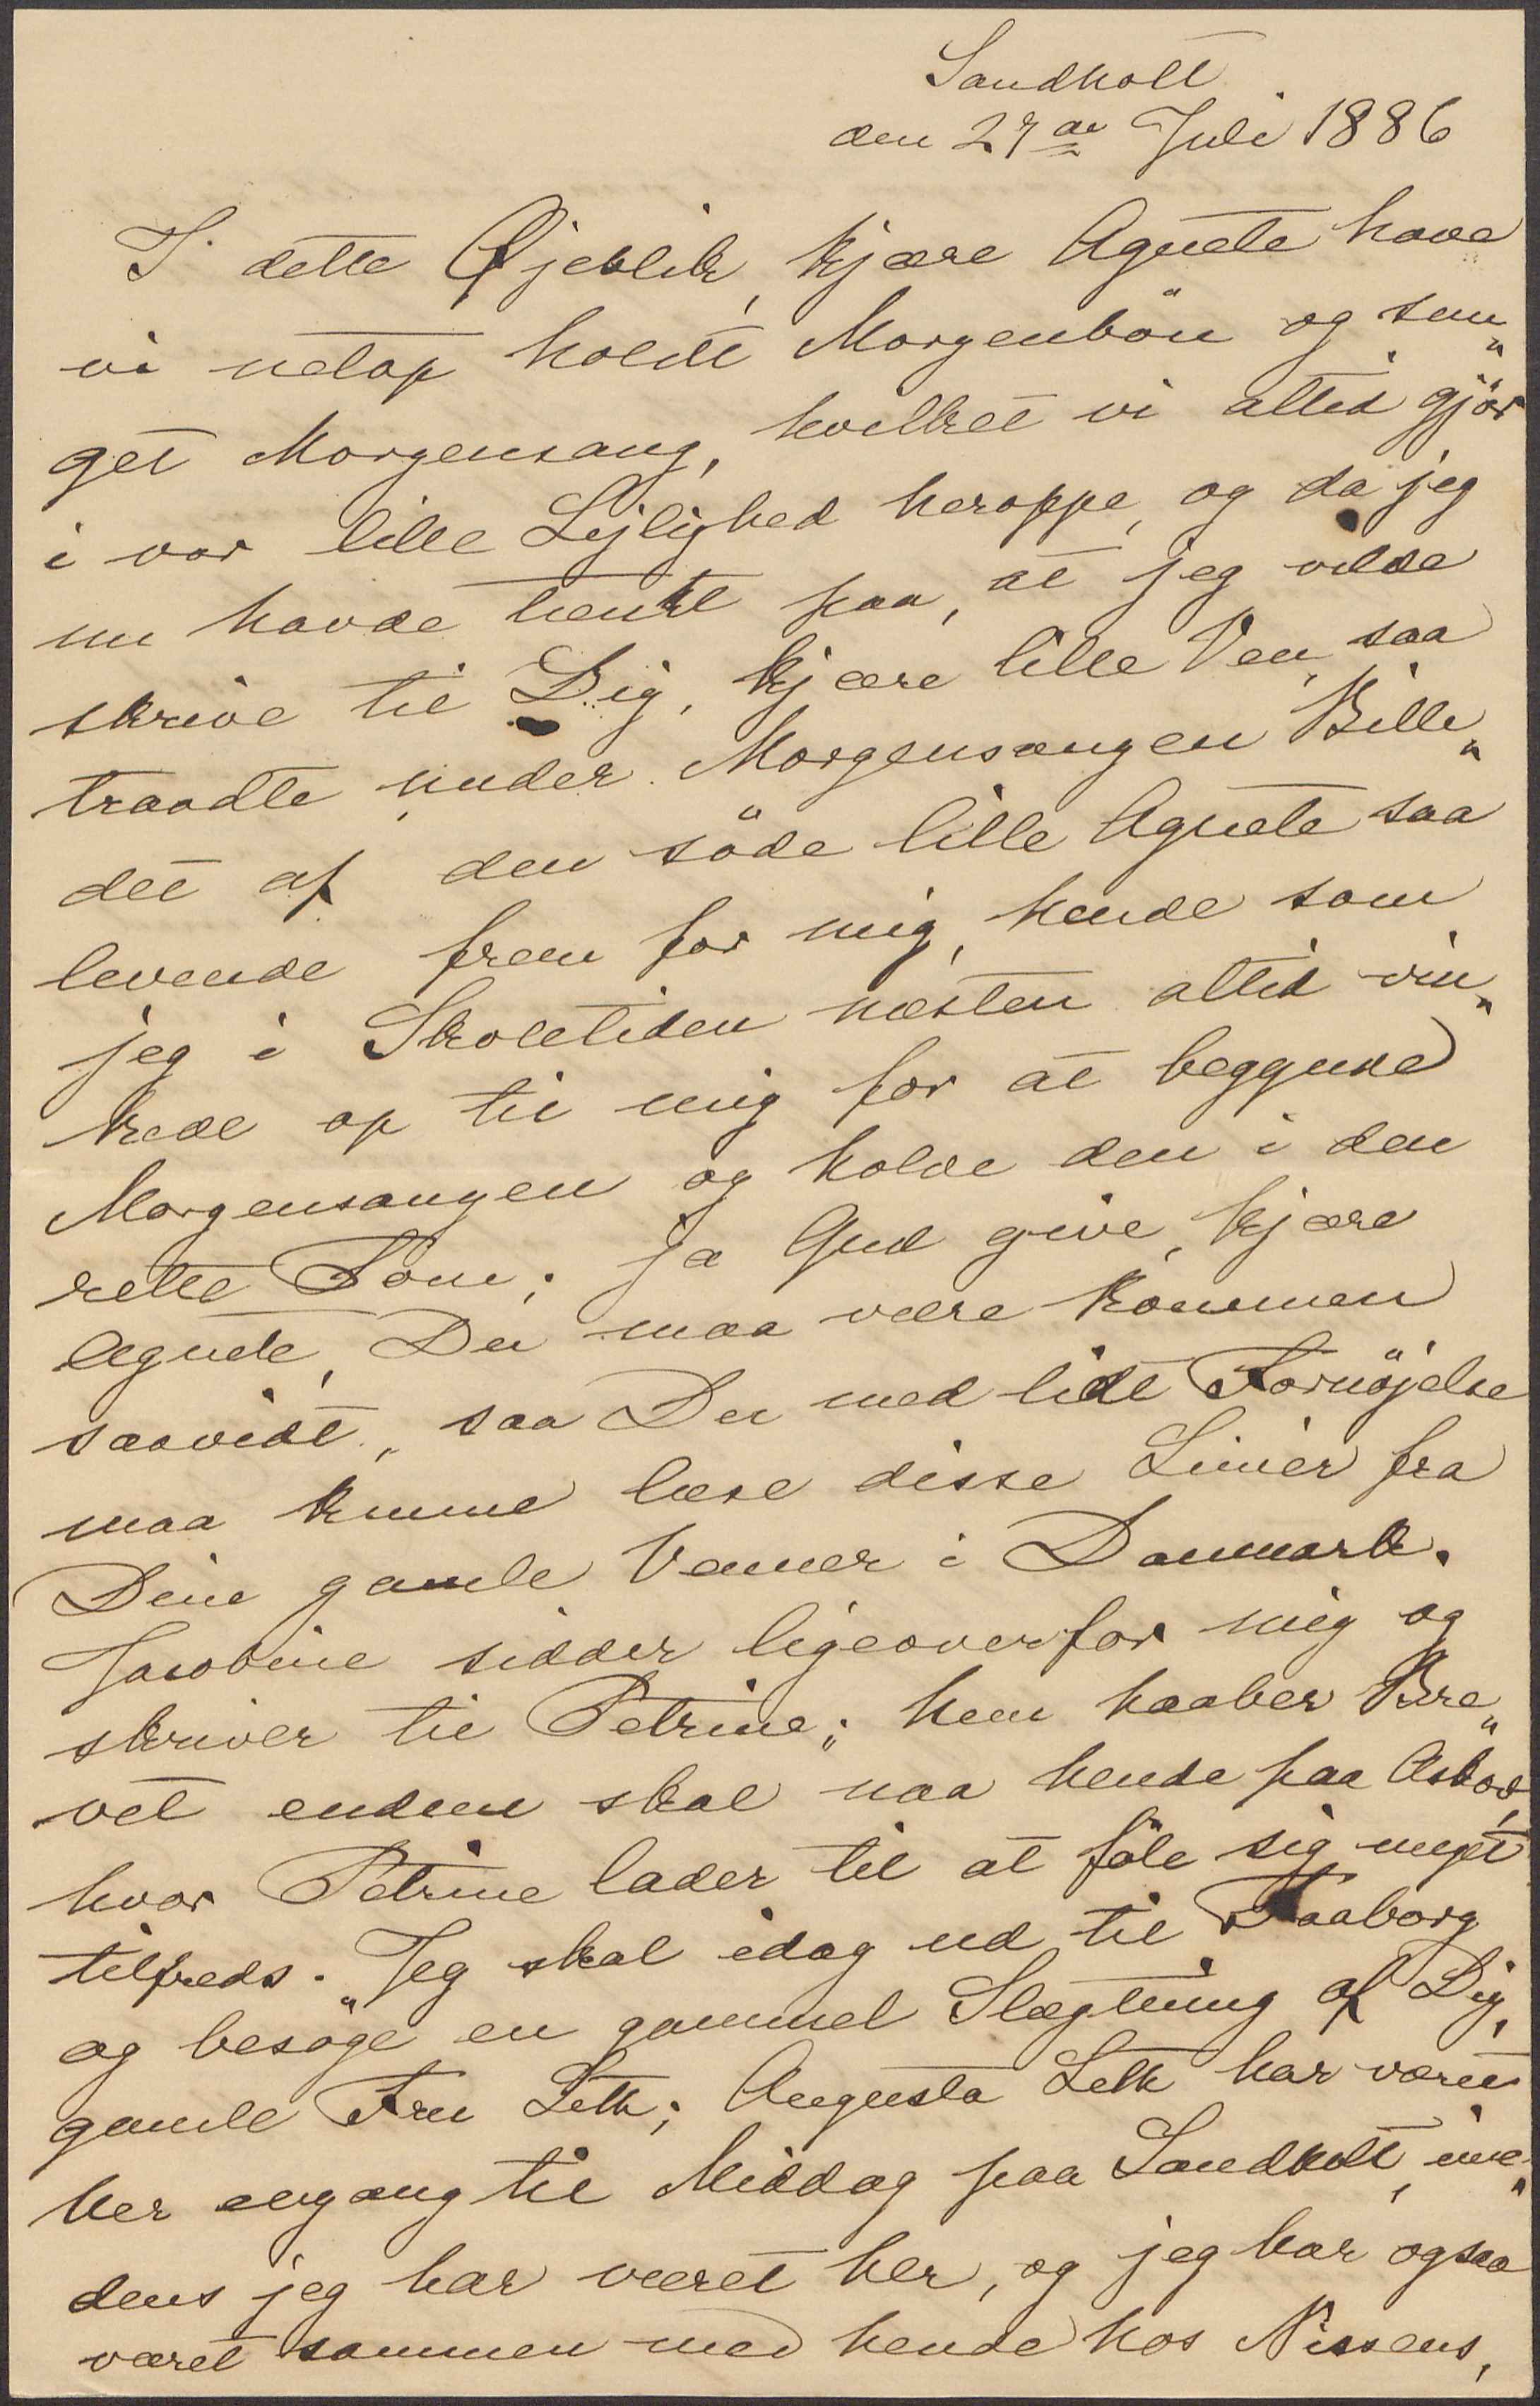 Sandholt
den 27de Juli 1886
I dette Øjeblik, kjære Agnete have
vi netop holdt Morgenbön og sun„
get Morgensang, hvilket vi altid gjör
i vor lille Lejlighed heroppe, og da jeg
nu havde tænkt paa, at jeg vilde
skrive til Dig, kjære lille Ven, saa
traadte under Morgensangen Bille„
det af den söde lille Agnete saa
levende frem for mig, hende som
jeg i Skoletiden næsten altid vin„
kede op til mig for at begynde
Morgensangen og holde den i den
rette Tone; ja Gud give, kjære
Agnete, Du maa være kommen
saavidt, saa Du med lidt Fornöjelse
maa kunne læse disse Linier fra
Dine gamle Venner i Danmark.
Jacobine sidder ligeoverfor mig og
skriver til Petrine; hun haaber Bre„
vet endnu skal naa hende paa Askov,
hvor Petrine lader til at föle sig meget
tilfreds. Jeg skal idag ud til Faaborg
og besöge en gammel Slægtning af Dig,
gamle Fru Leth; Augusta Leth har været
her engang til Middag paa Sandholt, ime„
dens jeg har været her, og jeg har ogsaa
været sammen med hende hos Nissens,